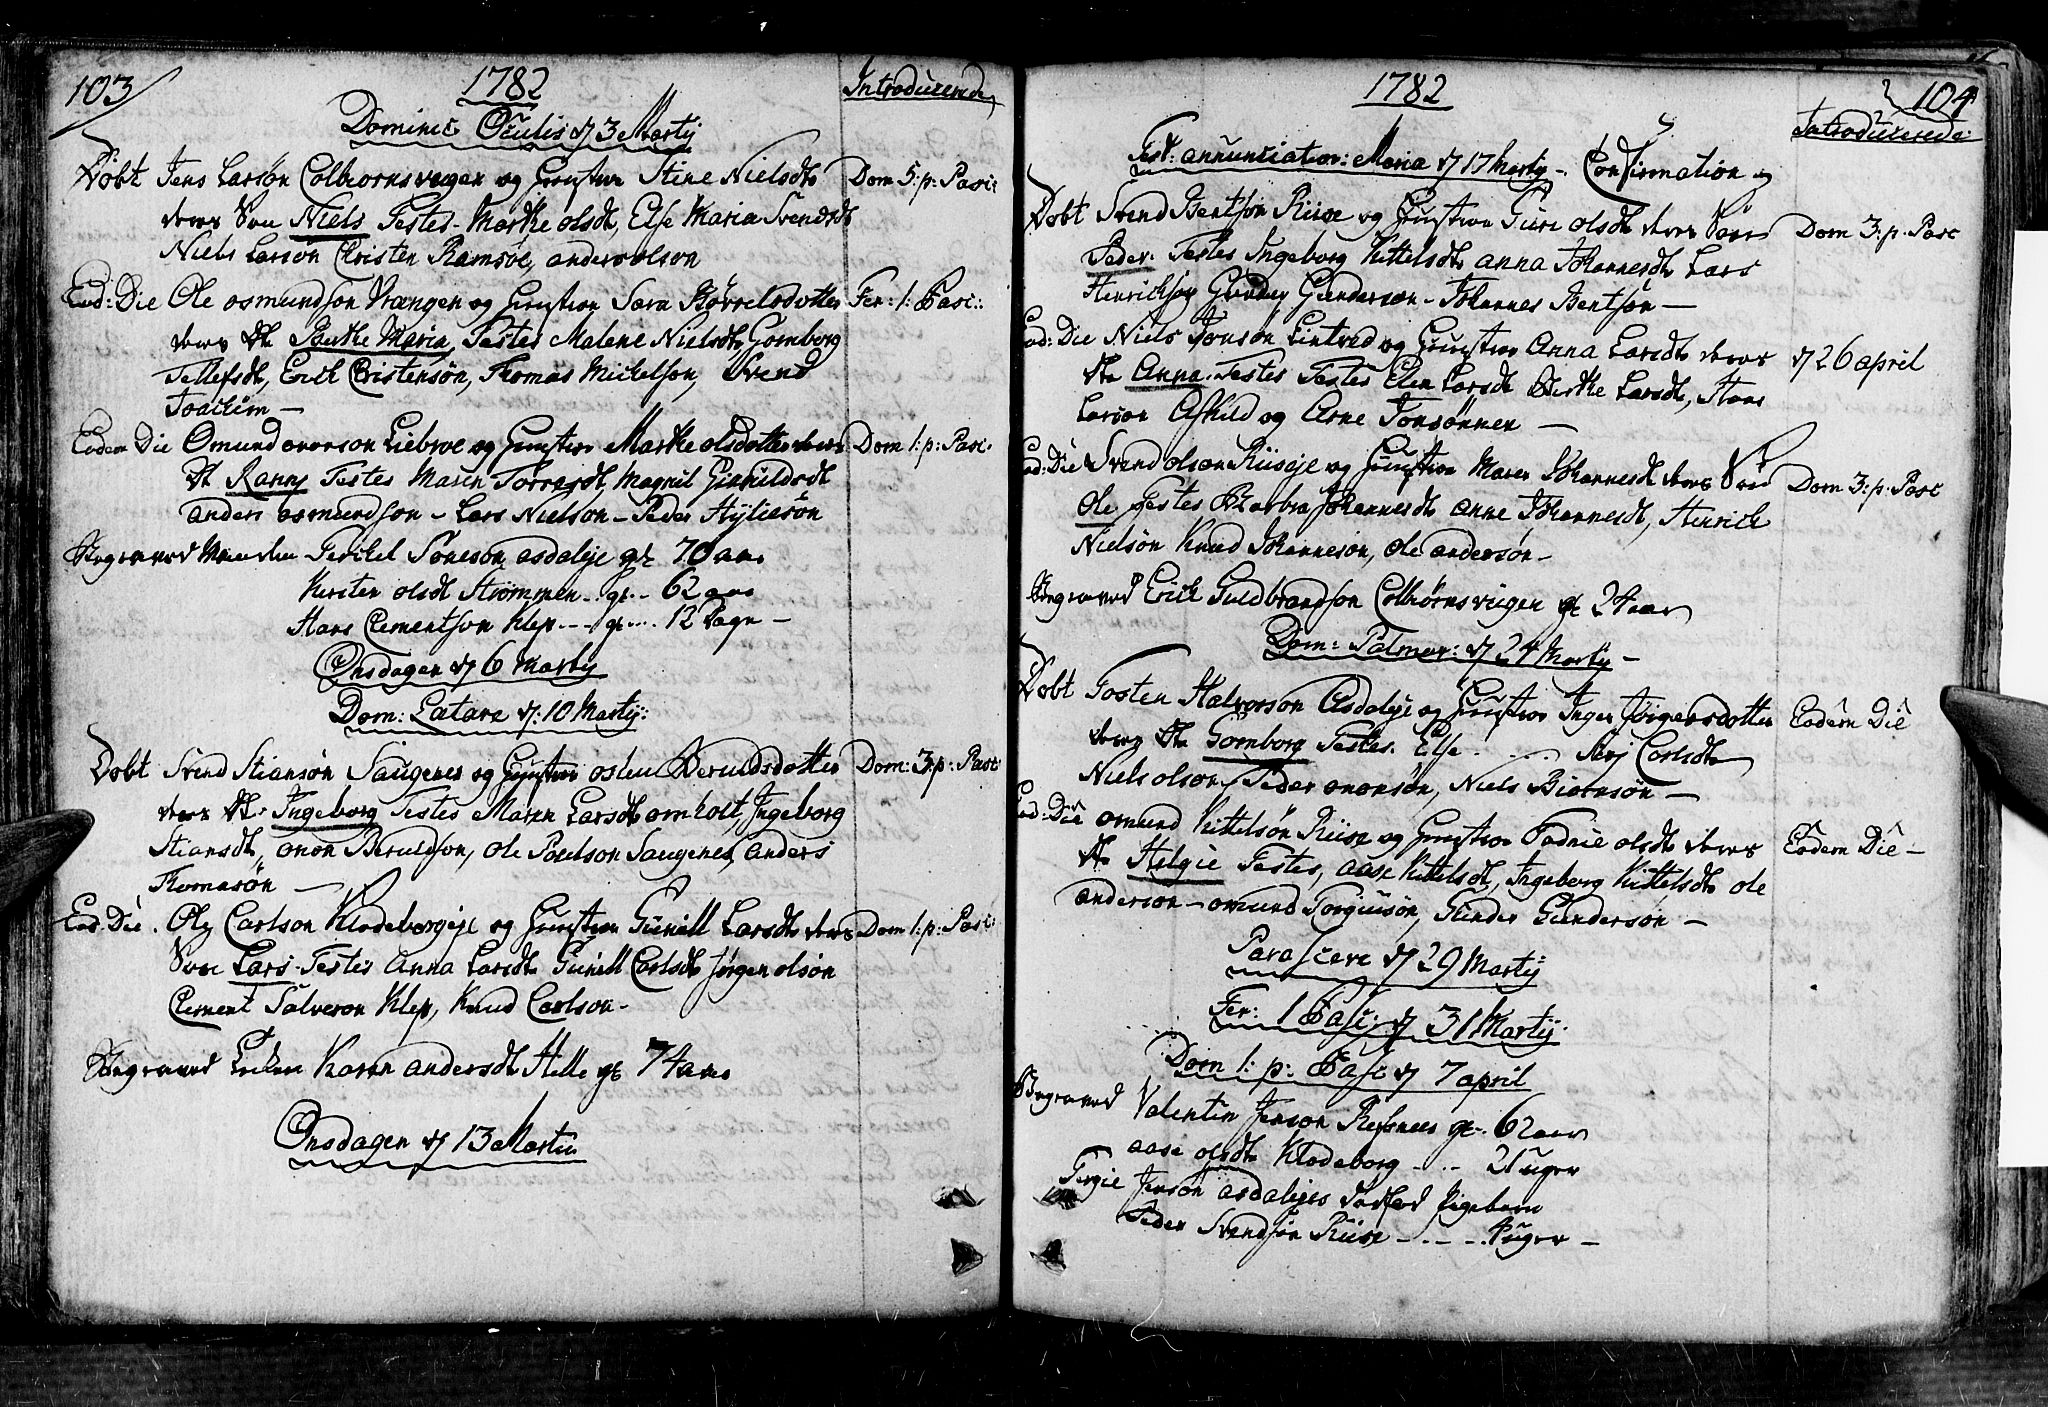 103
1782
Introducerede
Dominic Oculis d 3 Martij
Døbt Jens Larsøn Colbiørnsveigen og Hustrue Stine Nielsdt Dom 5: p: Pasc:
deres Søn Niels Testes Marthe olsdt, Else Maria Svendsdt
Niels Larsøn Christen Ramsøe, anders olson
Eod: Die Ole osmundson Vrængen og Hustrue Sara Størrelsdotter Fer: 1: Pasc:
deres Dtr Berthe Maria, Testes Malene Nielsdt, Gomborg
Tellefsdt, Erich Cristensøn, Thomas Mickelson, Svend
Joachim —
Eodem Die Omund ononson Liebroe og Hustrue Marthe olsdotter deres Dom 1: p: Pasc:
Dt Ranny Testes Maren Torresdt, Magnil Gunildsdt
anders osmundson – Lars Nielson – Peder
Begraved Manden Terchel Sonesøn asdaleje gl 70 aar
Kirsten olsdt Strømmen .. gl .. 62 aar
Hans Clementson Klep --- gl .... 12 Dage –
Onsdagen d 6 Martij
Dom: Lætare d: 10 Martij:
Døbt Svend Stiansøn Saugenes og Hustrue osten Beruldsdotter Dom: 3: p: Pasc
deres Dtr Ingeborg Testes Maren Larsdt omholt, Ingeborg
Stiansdt, onon Beruldson, ole Poulson Saugenes, anders
Thomasøn —
Eod: Die. Ole Carlson Klodeborgeje og Hustrue Gunill Larsdt deres Dom 1: p: Pasc:
Søn Lars Testes Anna Larsdt Gunill Carlsdt Jørgen olsøn
Clement Salveson Klep, Knud Carlson –
Begraved Enken Karen andersdt Helle gl 74 aar
Onsdagen d 13 Martij
1782
104
Introducerede:
Fest: annunciation: Maria d 17 Martij –. Confirmation
Døbt Svend Bentson Riise og Hustrue Guri olsdt deres Søn Dom 3: p: Pasc
Peder. Testes Ingeborg Kittelsdt anna Johannesdt Lars
Henrichson Gunder Gunderson – Johannes Bentsøn —
Eod: Die Niels Jonson Lintved og Hustrue Anna Larsdt deres d 26 april
Dtr Anna. Testes Testes Elen Larsdt Berthe Larsdt, Hans
Larson Askild og Arne Jonsønner —
Eod: Die Svend olson Riiseje og Hustrue Maren Johannesdt deres Søn Dom 3: p: Pasc
Ole Testes Barbra Johannesdt anne Johannesdt, Henrich
Nielsøn Knud Johannesøn, ole andersøn –
Begraved Erich Guldbrandson Colbiørnsveigen gl 24 aar
Dom: Palmar: d 24 Martij –
Døbt Tosten Halvorson Asdaleje og Hustrue Inger Jørgensdotter Eodem Die
deres Dtr Gomborg Testes. Else .... Carlsdt
Niels olson, Peder ononsøn, Niels Biørnsøn —
Eod: Die omund Kittelsøn Riise og Hustrue olsdt deres Eodem Die –
Dtr Helgie Testes, aase Kittelsdt, Ingeborg Kittelsdt ole
anderson – omund Torguisøn, Gunder Gundersøn –
Parasceve d 29 Martij
Fer: 1 Pasc: d 31 Martij:
Dom 1: p: Pasc d 7 april
Begraved Valentin Jenson Refsnees gl. 62 aar
aase olsdt Klodeborg – .. 2 uger
Tergie Jensøn asdalejes
Peder Svendsøn Riise – . – . – 4 uger –